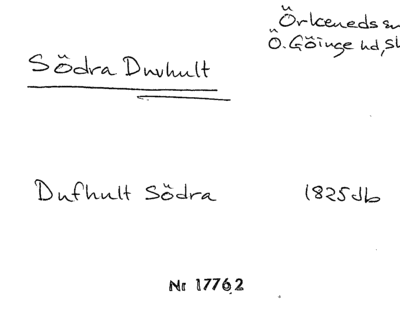 Örkeneds sn
Ö. Göinge hd, Sk
Södra Duvhult
Dufhult Södra 1825 db
Nr 17762